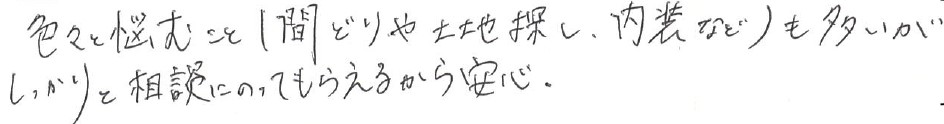 色々と悩むこと(間どりや土地探し、内装など)も多いが
しっかりと相談にのってもらえるから安心.